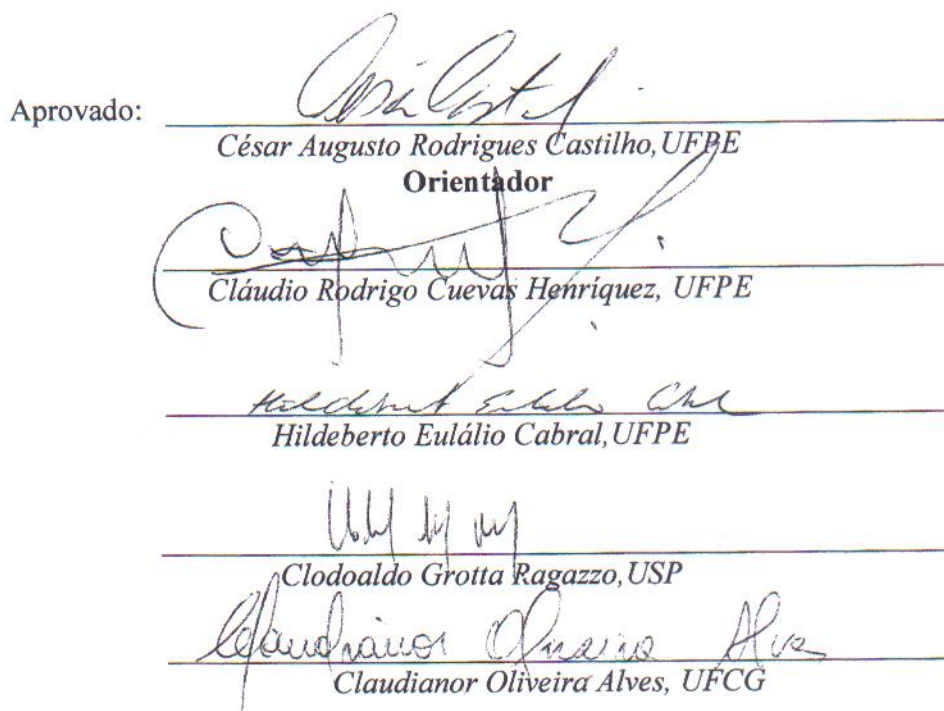 Aprovado:
César Augusto Rodrigues Castilho, UFPE
Orientador
Cláudio Rodrigo Cuevas Henríquez, UFPE
Hildeberto Eulálio Cabral, UFPE
Clodoaldo Grotta Ragazzo, USP
Claudianor Oliveira Alves
Claudianor Oliveira Alves, UFCG